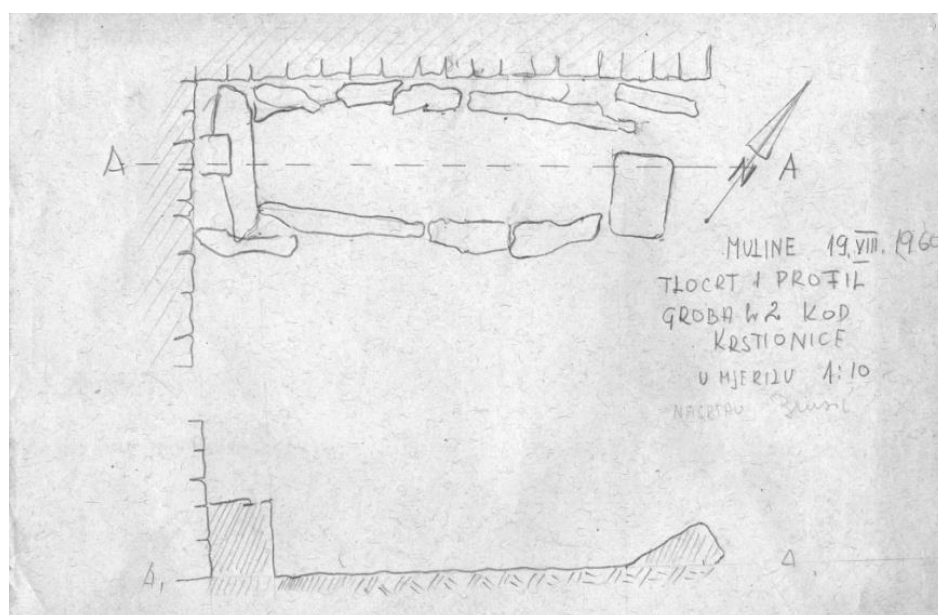 A A
N
MULINE 19. VIII. 1960
TLOCRT I PROFIL
GROBA br 2 KOD
KRSTIONICE
U MJERILU 1:10
NACRTAO
A, A,